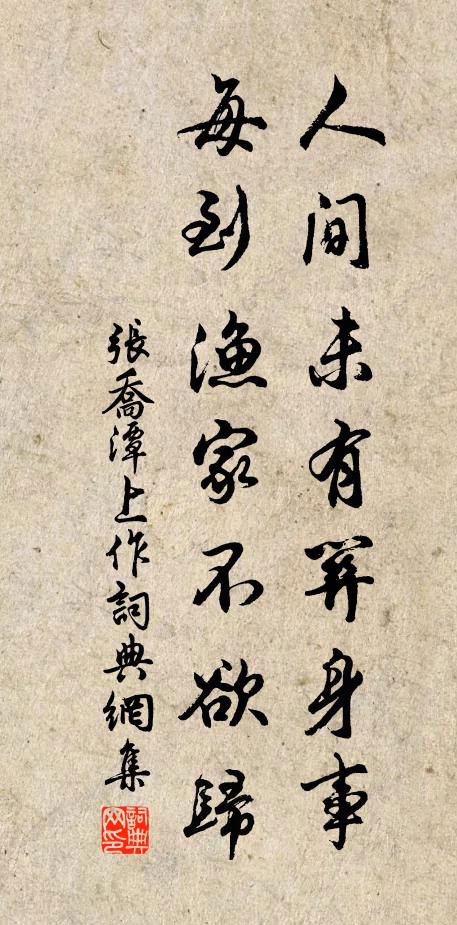 人間未有關身事
每到漁家不欲歸
張喬潭上作詞典網集
詞典網印